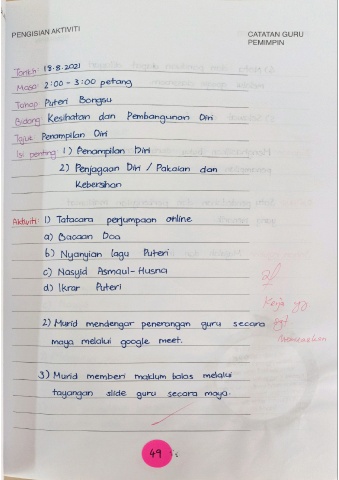 PENGISIAN AKTIVITI
CATATAN GURU
PEMIMPIN
Tarikh: 18.8.2021
Masa: 2:00 - 3:00 petang
Tahap: Puteri Bongsu
Bidang: Kesihatan dan Pembangunan Diri
Tajuk: Penampilan Diri
Isi penting: 1) Penampilan Diri
2) Penjagaan Diri / Pakaian dan
Kebersihan
Aktiviti: 1) Tatacara perjumpaan online
a) Bacaan Doa
b) Nyanyian lagu Puteri
c) Nasyid Asmaul-Husna
d) Ikrar Puteri
Kerja yg
sgt
2) Murid mendengar penerangan guru secara
maya melalui google meet.
3) Murid memberi maklum balas melalui
tayangan slide guru secara maya.
49